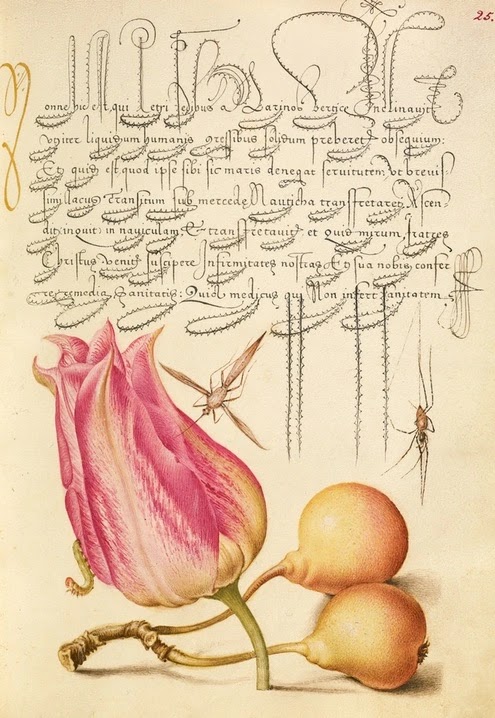 25.
Nonne hic est, qui Petri gressibus a Marinos Vertice inclinavit
Vtiter liquidum humanis gressibus solidum preberet obsequium:
Et quid est, quod ipse sibi sic maris denegat servitutem, vt brevis-
simi lacus Transitum sub mercede Nauticha transfretaret? Ascen-
dit, inquit in naviculam, & transfretavit et quid mirum, fratres
Christus venit suscipere Infirmitates nostras, Et sua nobis confer
re remedia Sanitatis: Quid medicus qui Non infert sanitatem